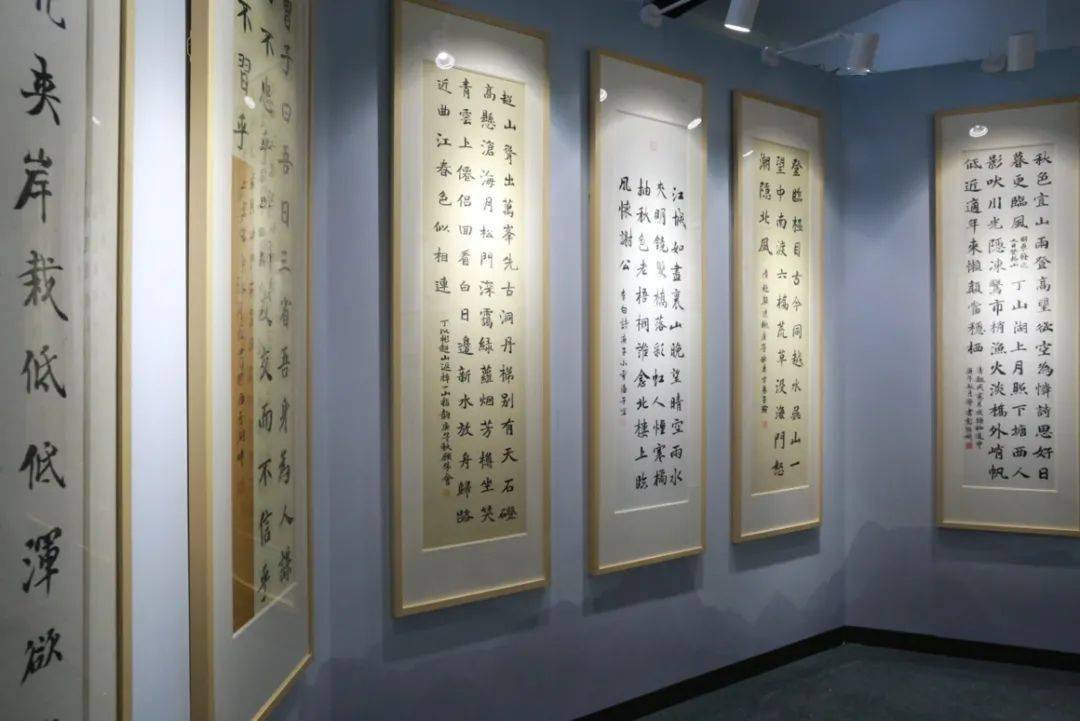 夾岸栽低低渾欲
曾子曰吾日三省吾身為人謀
不忠乎與朋友交而不信乎
不習乎
越山聳出萬峯先古洞丹梯別有天石磴
高懸滄海月松門深靄綠蘿烟芳樽坐笑
青雲上僊侶回看白日邊新水放舟歸路
近曲江春色似相連
江城如畫裏山晚望晴空兩水
夾明鏡雙橋落彩虹人煙寒橘
柚秋色老梧桐誰念北樓上臨
風懷謝公 李白詩庚子
登臨極目古今同越水吳山一
望中南渡六橋荒草沒海門怒
潮隱北風
秋色宜山雨登高望欲空為憐詩思好日
暮更臨風 丁山湖上月照下塘西人
影吹川光隱凍鷺市梢漁火淡橋外峭帆
低近適年來懶 當穩栖